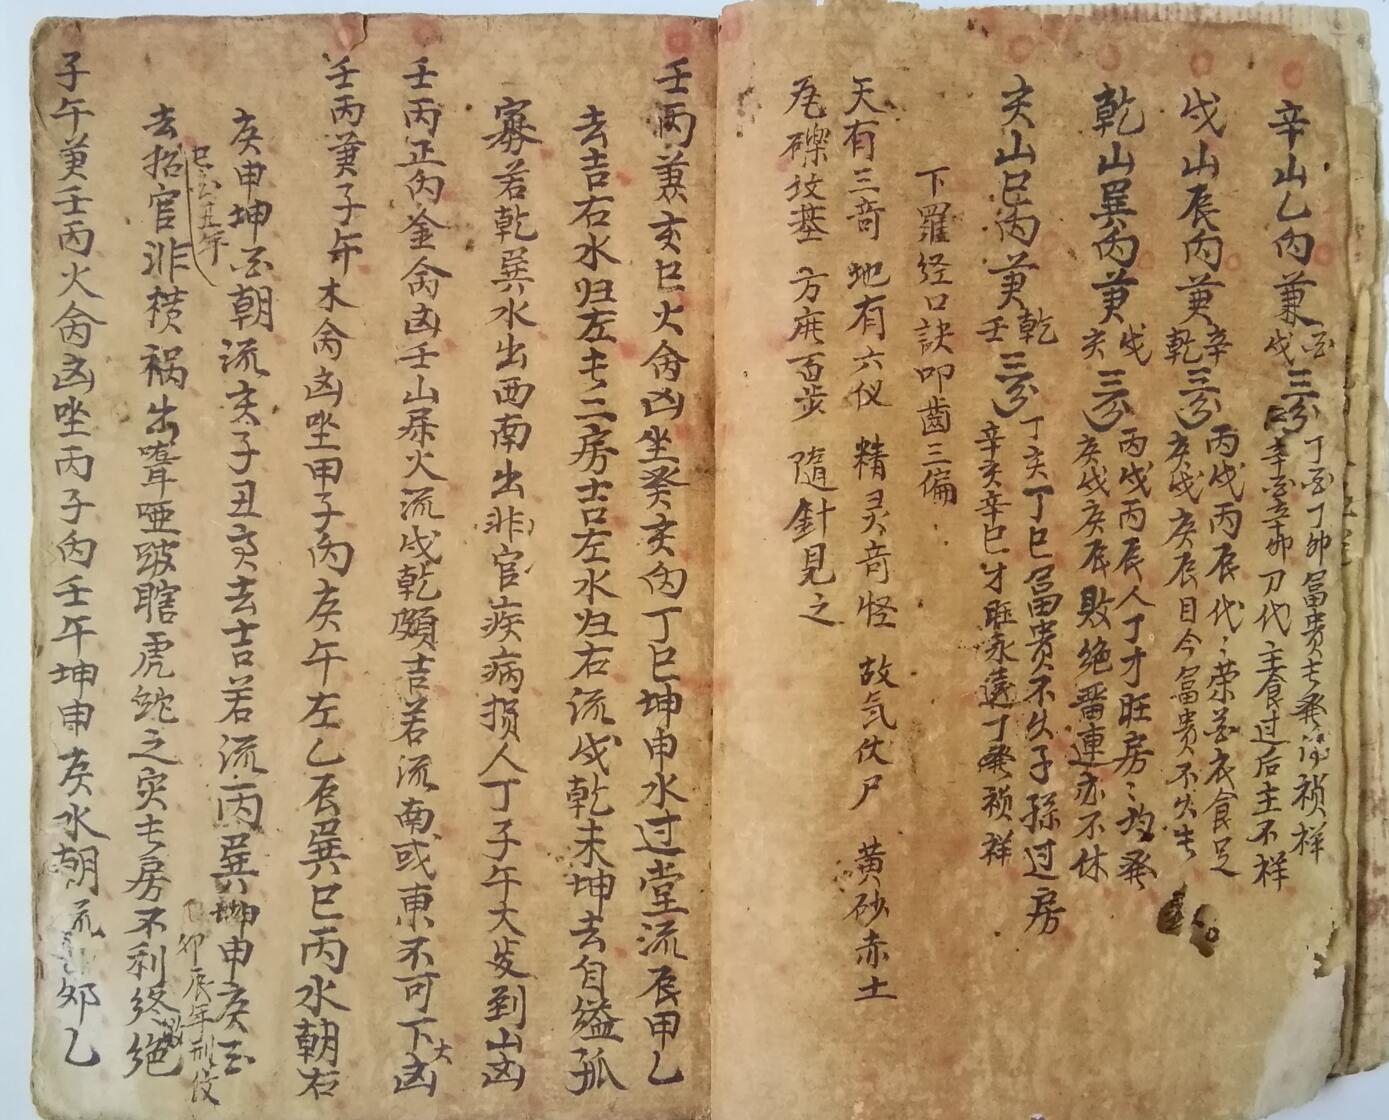 辛山乙向兼酉戌三分 丁酉丁卯富貴
辛酉辛卯 代主食过后主不祥
戌山辰向兼辛乾三分 丙戌丙辰代〻荣 衣食足
庚戌庚辰目今富贵不久
乾山巽向兼戌亥三分 丙戌丙辰人丁才旺房〻均発
庚戌庚辰敗绝 連亦不休
亥山巳向兼乾壬三分 丁亥丁巳富貴不久子孫过房
辛亥辛巳才旺永遠丁発祯祥
下羅经口訣叩齒三偏
天有三奇 地有六仪 精灵奇怪 故気伏尸 黄砂赤土
瓦礫坟基 方庶百步 隨針見之
壬丙兼亥巳火禽凶坐癸亥向丁巳坤申水过堂流辰甲乙
去吉右水归左 二房吉左水归右流戌乾未坤去自缢孤
寡若乾巽水出西南出非官疾病损人丁子午大 到山凶
壬丙正向金禽凶壬山 火流戌乾頗吉若流南或東不可下大凶
壬丙兼子午木禽凶坐甲子向庚午左乙辰巽巳丙水朝右
庚申坤酉朝流亥子丑 去吉若流丙巽坤申庚酉
巳酉丑年
去招官非横祸出聾哑跛瞎虎蛇之灾 房不利终绝
卯辰年刑
子午兼壬丙火禽凶坐丙子向壬午坤申庚水朝流 卯乙